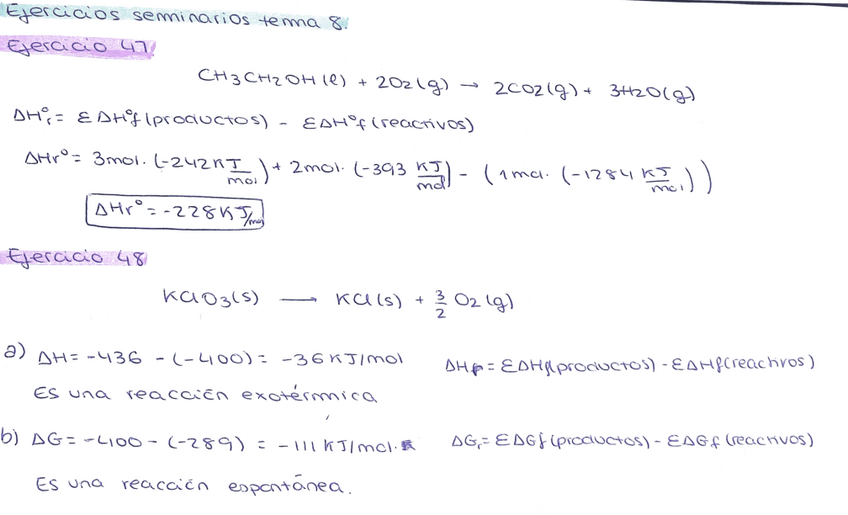 Ejercicios seminarios tema 8.
Ejercicio 47.
CH3CH2OH(l) + 2O2(g) → 2CO2(g) + 3H2O(g)
ΔH°r = ΣΔH°f(productos) - ΣΔH°f(reactivos)
ΔHr° = 3mol·(-242 KJ/mol) + 2mol·(-393 KJ/mol) - (1mol·(-1284 KJ/mol))
ΔHr° = -228KJ/mol
Ejercicio 48
KClO3(s) → KCl(s) + 3/2 O2(g)
a) ΔH = -436 - (-400) = -36KJ/mol ΔHr = ΣΔHf(productos) - ΣΔHf(reactivos)
Es una reacción exotérmica
b) ΔG = -400 - (-289) = -111 KJ/mol. ΔGr = ΣΔGf(productos) - ΣΔGf(reactivos)
Es una reacción espontánea.